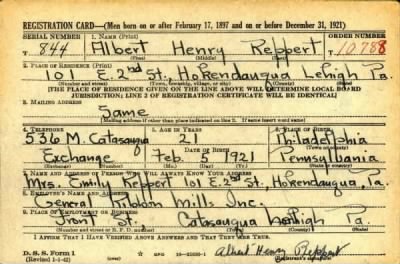 REGISTRATION CARD—(Men born on or after February 17, 1897 and on or before December 31, 1921)
SERIAL NUMBER 1. NAME (Print) ORDER NUMBER
T 844 Albert Henry Reppert T10,788
(First) (Middle) (Last)
2. PLACE OF RESIDENCE (Print)
101 E. 2nd St. Hokendauqua Lehigh Pa.
(Number and street) (Town, township, village, or city) (County) (State)
[THE PLACE OF RESIDENCE GIVEN ON THE LINE ABOVE WILL DETERMINE LOCAL BOARD
JURISDICTION; LINE 2 OF REGISTRATION CERTIFICATE WILL BE IDENTICAL]
3. MAILING ADDRESS
Same
[Mailing address if other than place indicated on line 2. If same insert word same]
4. TELEPHONE 5. AGE IN YEARS 6. PLACE OF BIRTH
536 M. Catasauqua 21 Philadelphia
DATE OF BIRTH (Town or county)
Exchange Feb. 5 1921 Pennsylvania
(Exchange) (Number) (Mo.) (Day) (Yr.) (State or country)
7. NAME AND ADDRESS OF PERSON WHO WILL ALWAYS KNOW YOUR ADDRESS
Mrs. Emily Reppert 101 E. 2nd St., Hokendauqua, Pa.
8. EMPLOYER'S NAME AND ADDRESS
General Ribbon Mills Inc.
9. PLACE OF EMPLOYMENT OR BUSINESS
Front St. Catasauqua Lehigh Pa.
(Number and street or R. F. D. number) (Town) (County) (State)
I AFFIRM THAT I HAVE VERIFIED ABOVE ANSWERS AND THAT THEY ARE TRUE.
D. S. S. Form 1
(Revised 1-1-42) Albert Henry Reppert
(Registrant's signature)